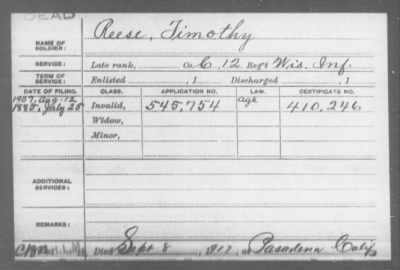 DEAD
NAME OF SOLDIER: Reese, Timothy
SERVICE: Late rank, Co. C, 12 Reg't Wis. Inf.
TERM OF SERVICE: Enlisted , 1 Discharged , 1
DATE OF FILING. CLASS. APPLICATION NO. LAW. CERTIFICATE NO.
1907, Aug. 12 age
1885, July 25 Invalid, 545,754 410,246
Widow,
Minor,
ADDITIONAL SERVICES:
REMARKS:
Died Sept 8, 1917, at Pasadena Calif